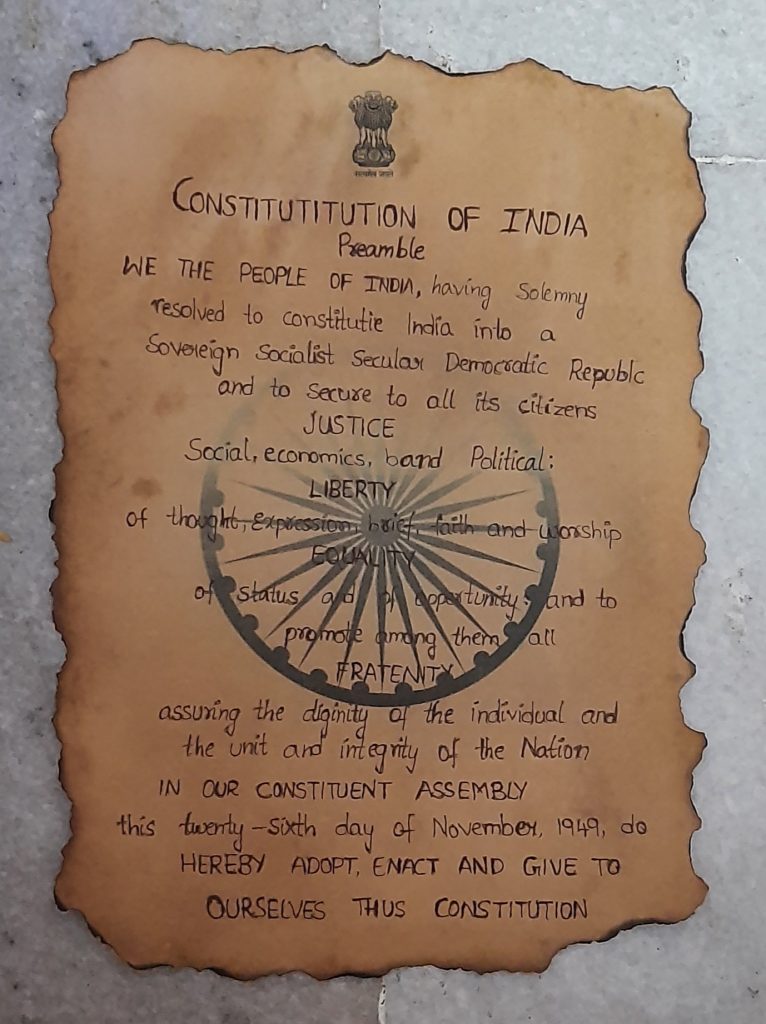 सत्यमेव जयते
CONSTITUTITUTION OF INDIA
Preamble
WE THE PEOPLE OF INDIA, having Solemny
resolved to constitutie India into a
Sovereign Socialist Secular Democratic Republc
and to secure to all its citizens
JUSTICE
Social, economics, band Political:
LIBERTY
of thought, Expression, brief, faith and worship
EQUALITY
of status and of opportunity: and to
promote among them all
FRATENITY
assuring the diginity of the individual and
the unit and integrity of the Nation
IN OUR CONSTITUENT ASSEMBLY
this twenty-sixth day of November, 1949, do
HEREBY ADOPT, ENACT AND GIVE TO
OURSELVES THUS CONSTITUTION